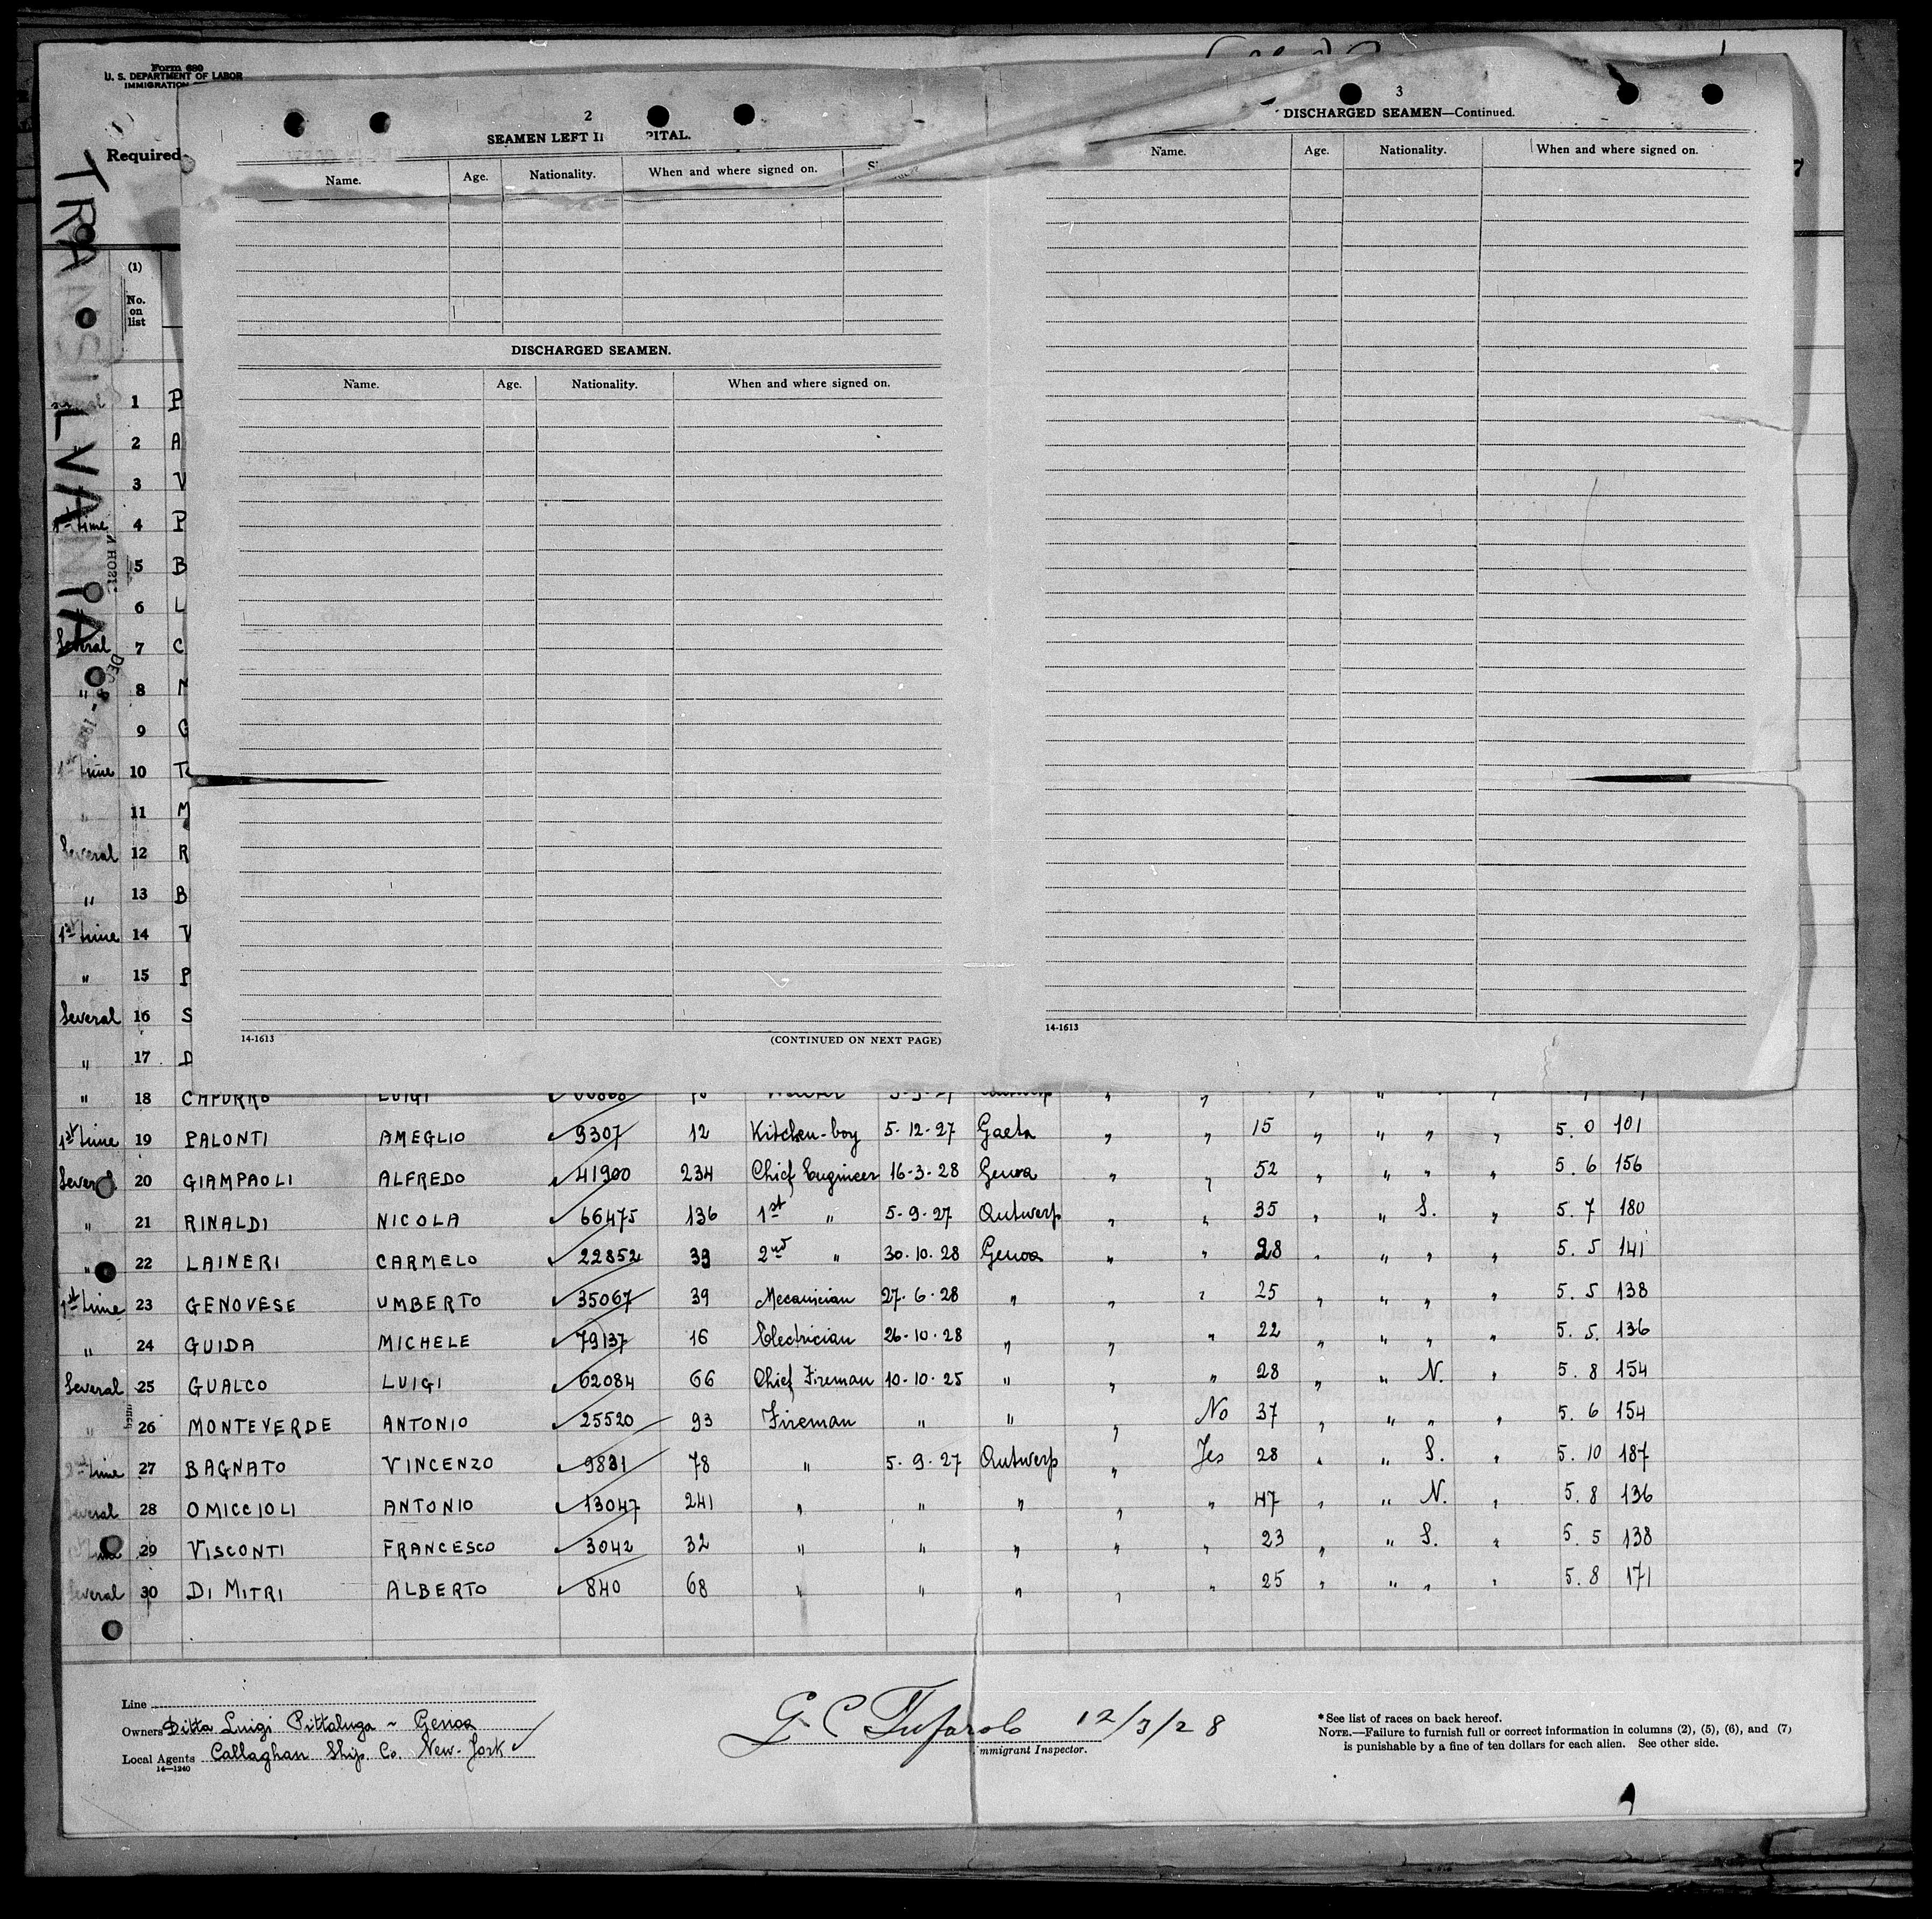 Form 680
U. S. DEPARTMENT OF LABOR
IMMIGRATION
Required
TRANSILVANIA
(1)
No.
on
list
2
SEAMEN LEFT I PITAL.
Name. Age. Nationality. When and where signed on.
DISCHARGED SEAMEN.
Name. Age. Nationality. When and where signed on.
14-1613 (CONTINUED ON NEXT PAGE)
3
DISCHARGED SEAMEN—Continued.
Name. Age. Nationality. When and where signed on.
14-1613
1 P
2 A
3 V
1st time 4 P
5 B
6 L
Several 7 C
" 8
9 G
1st time 10 T
11 M
Several 12 R
" 13 B
1st time 14 V
" 15 P
Several 16 S
" 17 D
" 18 CAPURRO LUIGI
1st time 19 PALONTI AMEGLIO 9307 12 Kitchen-boy 5-12-27 Gaeta " " 15 " " " " 5. 0 101
Several 20 GIAMPAOLI ALFREDO 41900 234 Chief Engineer 16-3-28 Genoa " " 52 " " " " 5. 6 156
" 21 RINALDI NICOLA 66475 136 1st " 5-9-27 Antwerp " " 35 " " S. " 5. 7 180
" 22 LAINERI CARMELO 22852 39 2nd " 30.10.28 Genoa " " 28 " " " " 5. 5 141
1st time 23 GENOVESE UMBERTO 35067 39 Mecanician 27-6-28 " " " 25 " " " " 5. 5 138
" 24 GUIDA MICHELE 79137 16 Electrician 26-10-28 " " " 22 " " " " 5. 5. 136
Several 25 GUALCO LUIGI 62084 66 Chief Fireman 10-10-25 " " " 28 " " N. " 5. 8 154
" 26 MONTEVERDE ANTONIO 25520 93 Fireman " " " No 37 " " " " 5. 6 154
2nd time 27 BAGNATO VINCENZO 9831 78 " 5-9-27 Antwerp " Yes 28 " " S. " 5. 10 187
Several 28 OMICCIOLI ANTONIO 13047 241 " " " " " 47 " " N. " 5. 8 136
29 VISCONTI FRANCESCO 3042 32 " " " " " 23 " " S. " 5. 5 138
Several 30 DI MITRI ALBERTO 840 68 " " " " " 25 " " " " 5. 8 171
Line
Owners Ditta Luigi Pittaluga ~ Genoa
Local Agents Callaghan Ship. Co. New-York
14—1240
G C Tufarolo 12/3/28
mmigrant Inspector.
*See list of races on back hereof.
NOTE.—Failure to furnish full or correct information in columns (2), (5), (6), and (7)
is punishable by a fine of ten dollars for each alien. See other side.